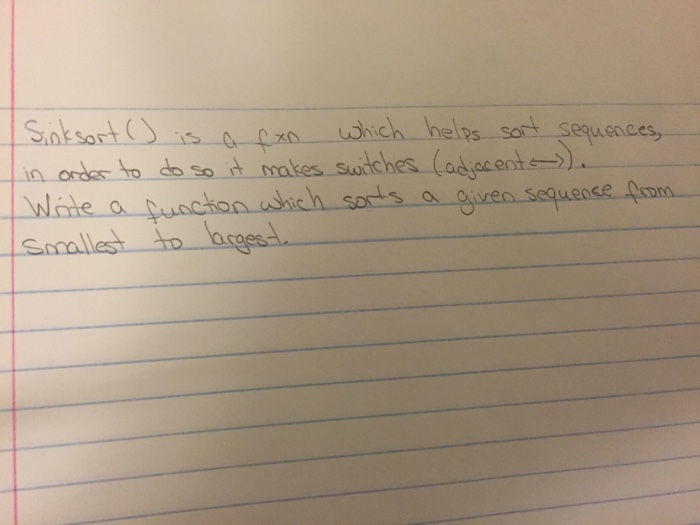 Sinksort() is a fxn which helps sort sequences,
in order to do so it makes switches (adjacent ⟷).
Write a function which sorts a given sequence from
smallest to largest.